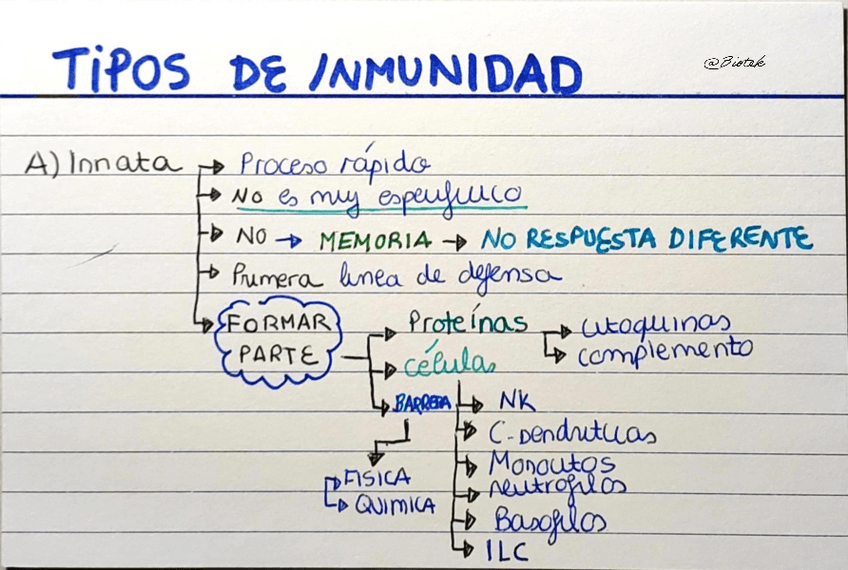 TIPOS DE INMUNIDAD
@Biotek
A) Innata → Proceso rápido
→ NO es muy específico
→ NO → MEMORIA → NO RESPUESTA DIFERENTE
→ Primera linea de defensa
→ FORMAR PARTE
→ Proteínas → citoquinas
→ complemento
→ células
→ NK
→ C-Dendriticas
→ Monocitos
→ neutrofilos
→ Basofilos
→ ILC
→ BARRERA
→ FISICA
→ QUIMICA